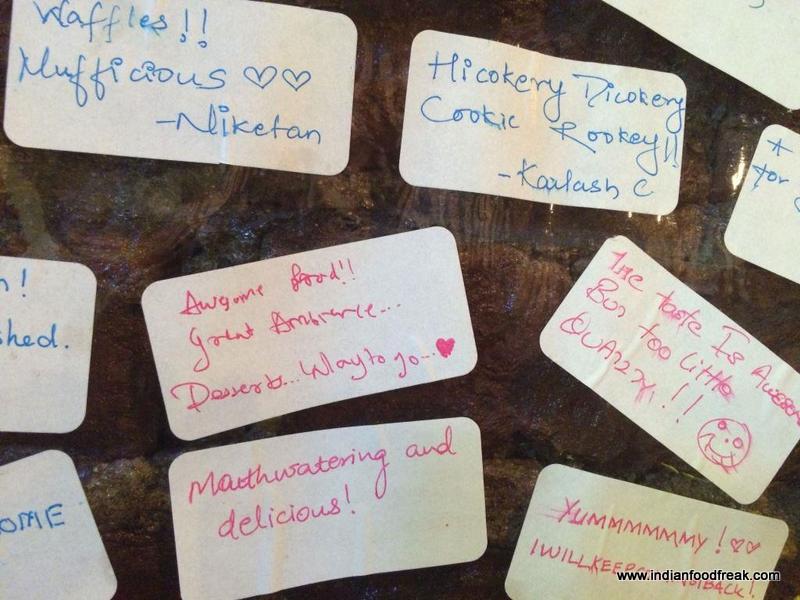 Waffles!!
Mufficious ♡♡
-Niketan
Hicokery Dicokery
Cookie Rookey!!
-Kailash C
for
n!
shed.
Awsome food!!
Great Ambience...
Desserts... Way to go... ♥
The taste Is Awesom
But too little
QUAZZY!!
OME
Mouthwatering and
delicious!
YUMMMMMMY! ♡♡
I WILL KEEP BACK!
www.indianfoodfreak.com